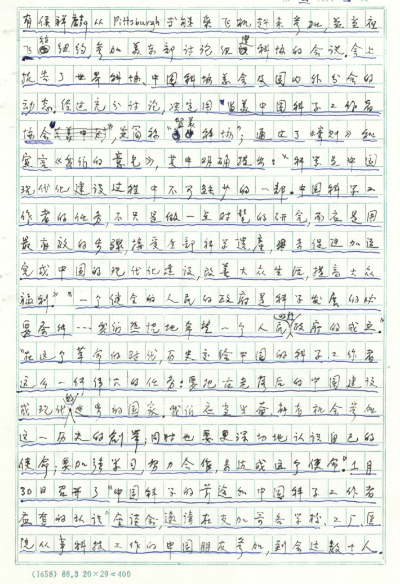 有侯祥麟从Pittsburgh 乘飞机赶来参加,并立社
纽约,参加美东部讨论组中科协的会议。会上
报告了世界科协、中国科协美会及国内外分会的
动态,经过充分讨论,决定用"留美中国科学工作者
协会",英简称"留美科协";通过了《章则》和
宣言《我们的意见》,其中明确提出:"科学是中国
现代化建设过程中不可缺少的一部。中国科学工
作者的任务,不只是做一点时髦的研究,而应是用
最有效的步骤接受全部科学遗产,来促进加速
完成中国的现代化建设,改善大众生活,提高大众
福利。""一个健全的人民的政府是科学发展的必
要条件……我们热忱地希望一个人民政府的成立。"
"在这个革命的时代,历史交给中国的科学工作者
这么一件伟大的任务:要把落后的中国建设
成现代进步的国家。我们应当骄傲有机会参加
这一历史的创举;同时也要更深切地认识自己的
使命;要加强学习,努力合作,来达成这个使命。"1月
30日召开了"中国科学的前途和中国科学工作者
应有的认识"座谈会,邀请在芝加哥各学校,工厂,医
院从事科技工作的中国朋友参加,到会达数十人。
(1658) 86.3 20×20=400